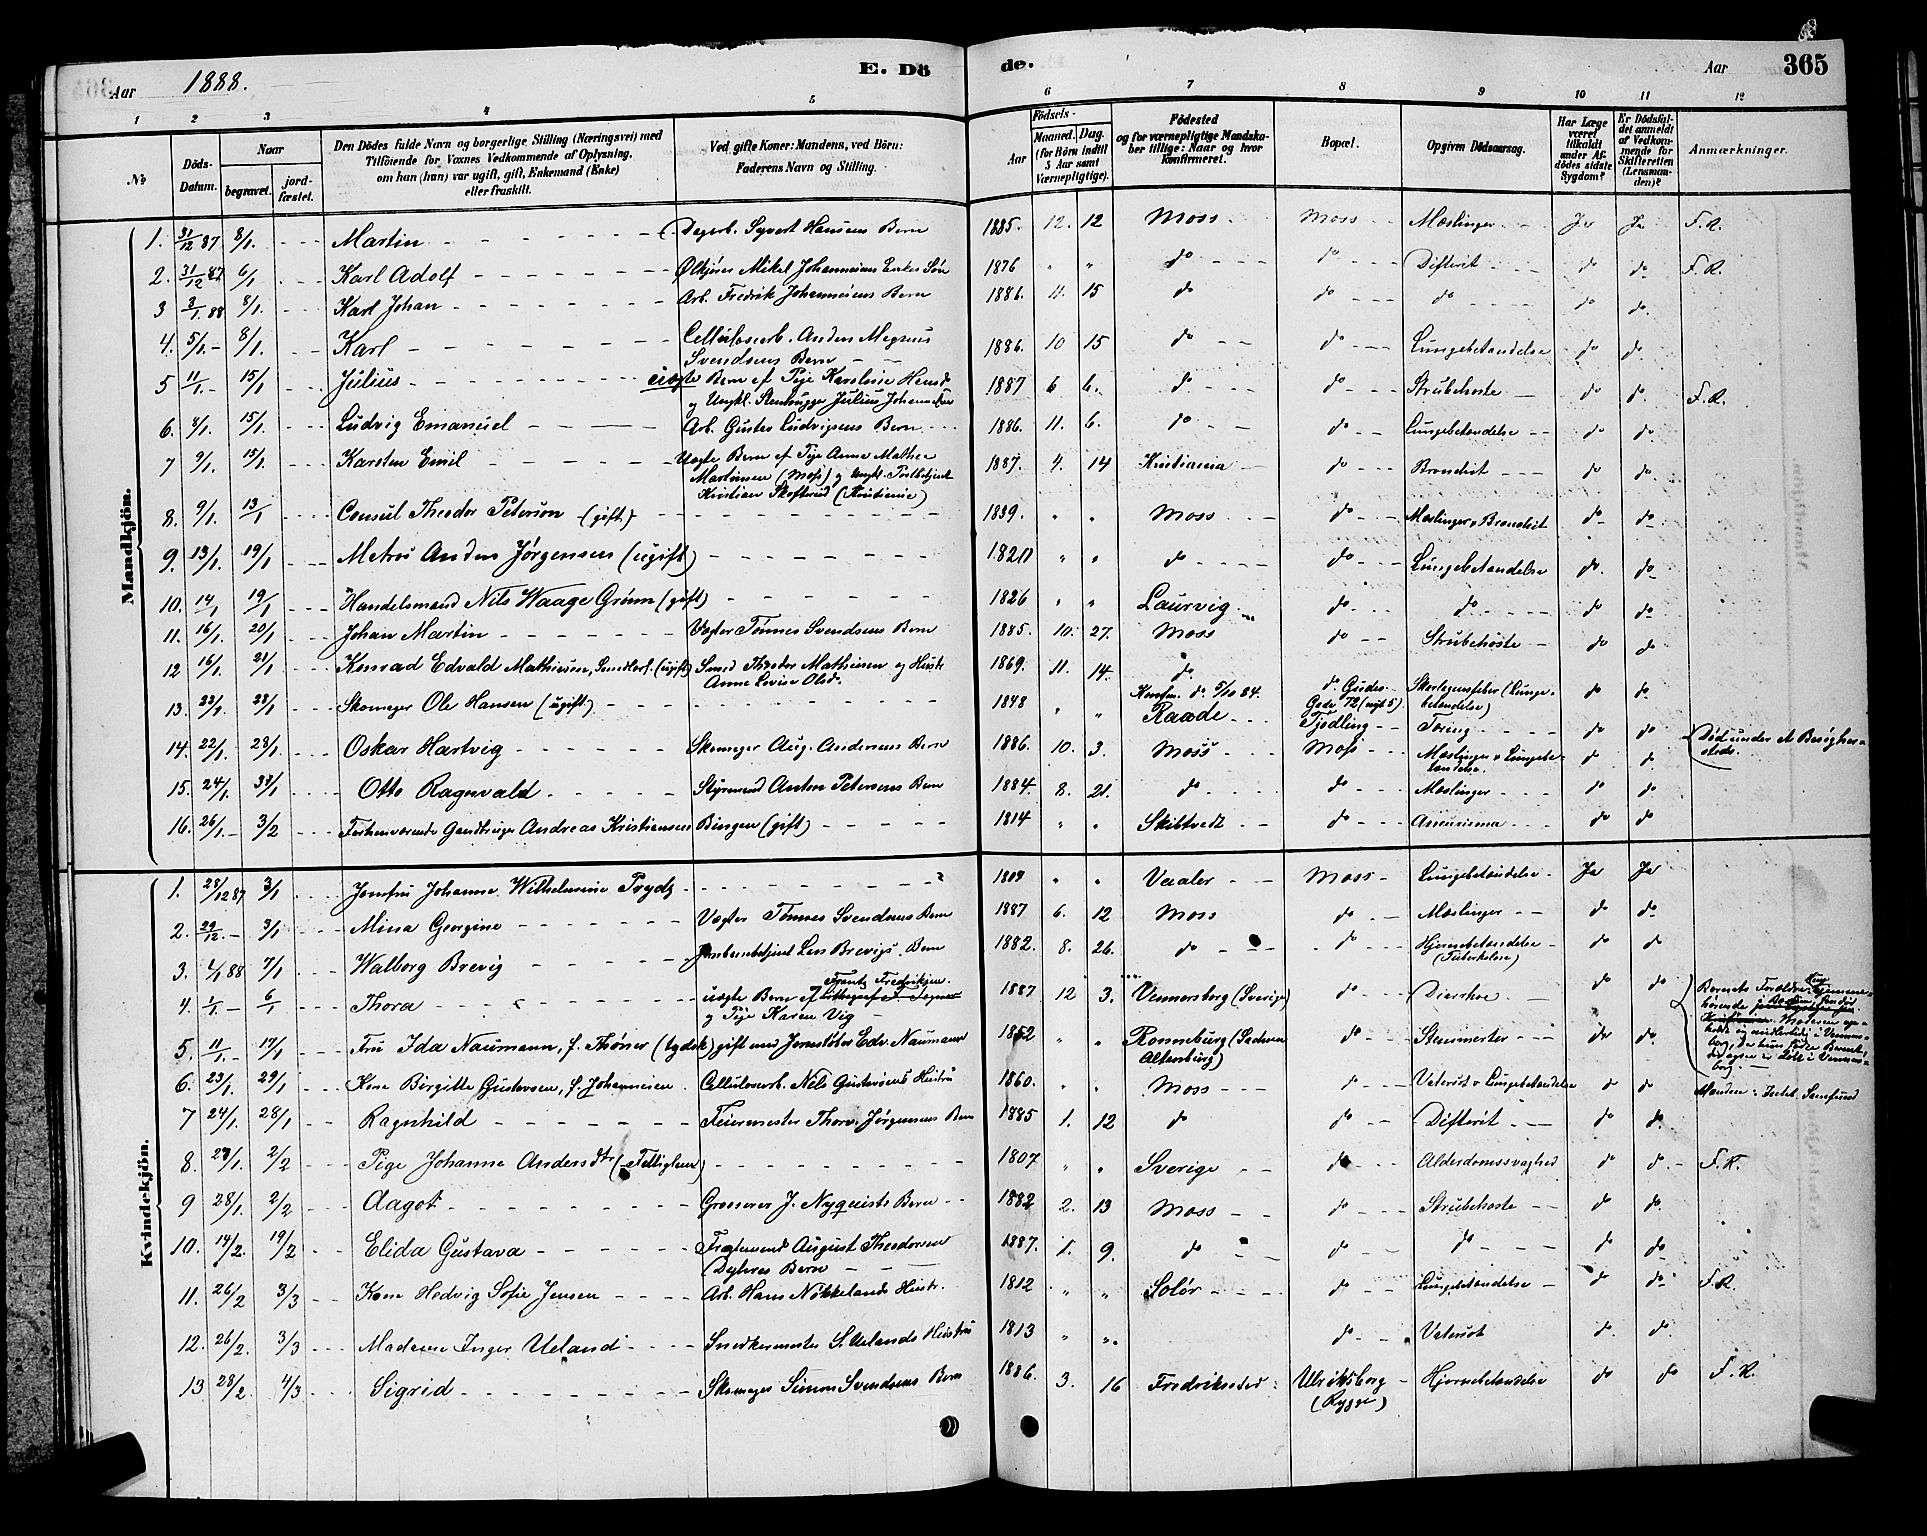 Aar 1888.
E. Dö
de.
Aar
365
1 2 3 4 5 6 7 8 9 10 11 12
No
Döds-Datum.
Naar
begravet.
jord-fæstet.
Den Dödes fulde Navn og borgerlige Stilling (Næringsvei) med
Tilföiende for Voxnes Vedkommende af Oplysning,
om han (hun) var ugift, gift, Enkemand (Enke)
eller fraskilt.
Ved gifte Koner: Mandens, ved Börn:
Faderens Navn og Stilling.
Födsels-
Aar
Maaned. Dag.
(for Börn indtil
5 Aar samt
Værnepligtige).
Födested
og for værnepligtige Mandska-
ber tillige: Naar og hvor
konfirmeret.
Bopæl.
Opgiven Dödsaarsag.
Har Læge
været
tilkaldt
under Af-
dödes sidste
Sygdom?
Er Dödsfal-
det anmeldt
af Vedkom-
mende for
Skifteretten
(Lensman-
den)?
Anmærkninger.
Mandkjön.
1. 31/12 87 8/1. Martin Dagarb. Syvert Hansens Barn 1885. 12. 12 Moss Moss Mæslinger Ja Ja F.R.
2. 31/12 87 6/1 Karl Adolf Mikal Johannesens Enkes Søn 1876 " " do do Difterit do do F.R.
3 3/1 88 8/1. Karl Johan Arb. Fredrik Johannesens Barn 1886. 11. 15 do do do do do
4. 5/1.- 8/1. Karl Cellulosearb. Anders Magnus
Svendsens Barn 1886. 10 15 do do Lungebetændelse do do
5 11/1.- 15/1 Julius uægte Barn af Pige Karoline Hansd.
og Ungkl. Stenhugger Julius Johannesen 1887 6 6. do do Strubehoste do do F.R.
6. 8/1. 15/1. Ludvig Emanuel Arb. Gustav Ludvigsens Barn 1886. 11. 6. do do Lungebetændelse do do
7 9/1. 15/1. Karsten Emil Uægte Barn af Pige Anna Mathea
Martinsen (Moss) og Ungk. Postbetjent
Kristian (Kristiania) 1887. 4. 14 Kristiania do Bronchit do do
8. 9/1. 13/1 Consul Theodor Peterson (gift) 1839. " " Moss do Mæslinger, Bronchit do do
9. 13/1. 19/1 Matros Anders Jørgensen (ugift) " " do do Lungebetændelse do do
10. 14/1 19/1 Handelsmand Nils Waage Grønn (gift) 1826 " " Laurvig do do do do
11. 16/1. 20/1 Johan Martin Vægter Tønnes Svendsens Barn 1885. 10. 27. Moss do Strubehoste do do
12 16/1. 21/1 Konrad Edvald Mathiesen, (ugift) Smed Theodor Mathiesen og Hustr.
Anne Lovise Olsd. 1869. 11. 14. do
Konfm. do 5/10 84. do Gudes
Gade 72 (nyt 5) Skarlagensfeber (Lunge-
betændelse) do do
13. 23/1. 28/1 Skomager Ole Hansen (ugift) 1848 " " Raade Tjedling Tæring do do
14. 22/1. 28/1. Oskar Hartvig Skomager Aug. Andersens Barn 1886. 10. 3. Moss Moss Mæslinger, Lungebe-
tændelse. do do Død under
15. 24/1. Otto Ragnvald Styrmand Anton Petersens Barn 1884. 8. 21. do do Mæslinger do do
16. 26/1.- 3/2 Forhenværende Gaardbruger Andreas Kristiansen Bingen (gift) 1814 " " Skibtvedt do Aneurisma do do
Kvindekjön.
1. 28/12 87 3/1 Jomfru Johanne Wilhelmine Prydz 1809 " " Vaaler Moss Lungebetændelse Ja Ja
2. 29/12.- 3/1 Mina Georgine Vægter Tønnes Svendsens Barn 1887 6. 12 Moss do Mæslinger do do
3. 88 7/1 Walborg Brevig Jernbanebetjent Lars Brevigs Barn 1882. 8. 26. do do Hjernebetændelse
(Tuberkuløse) do do
4. 6/1 Thora uægte Barn af Frantz Fredriksen
og Pige Karen Vig 1887 12 3. Vennersborg (Sverige) do Diarrhoe do do Barnets Forældre
5. 11/1.- 17/1 Fru Ida Naumann, f. Thöner (tydsk) gift med Jernstøber Edv. Naumann Ronneburg (Sachsen
Altenburg) do do do
6. 23/1. 29/1 Kone Birgitte Gustavsen, f. Johannesen Cellulosearb. Nils Gustavsens Hustru 1860. " " Moss do Vatersot, Lungebetændelse do do
7 24/1. 28/1 Ragnhild Feiermester Thorv. Jørgensens Barn 1885 1. 12 do do Difterit do do
8. 2/2 Pige Johanne Andersdtr (Fattiglem) 1807 " " Sverige do Alderdomssvaghed do do F.R.
9 28/1. 2/2 Aagot Grosserer J. Nyquists Barn 1882 2. 13 Moss do Strubehoste do do
10. 14/2. 19/2 Elida Gustava August Theodorsen
Barn 1887. 1. 9. do do do do do
11. 26/2 3/3 Kone Hedvig Sofie Jensen Arb. Hans Nökkelands Hustr. 1812 " " Solør do Lungebetændelse do do F.R.
12. 26/2. 3/3 Madame Inger Ueland Snedkermester S. Uelands Hustru 1813 " " do Vatersot do do
13 28/2. 4/3 Sigrid Skomager Simon Svendsens Barn 1886. 3. 16 Fredriksstad Ulriksborg
(Rygge) Hjernebetændelse do do F.R.